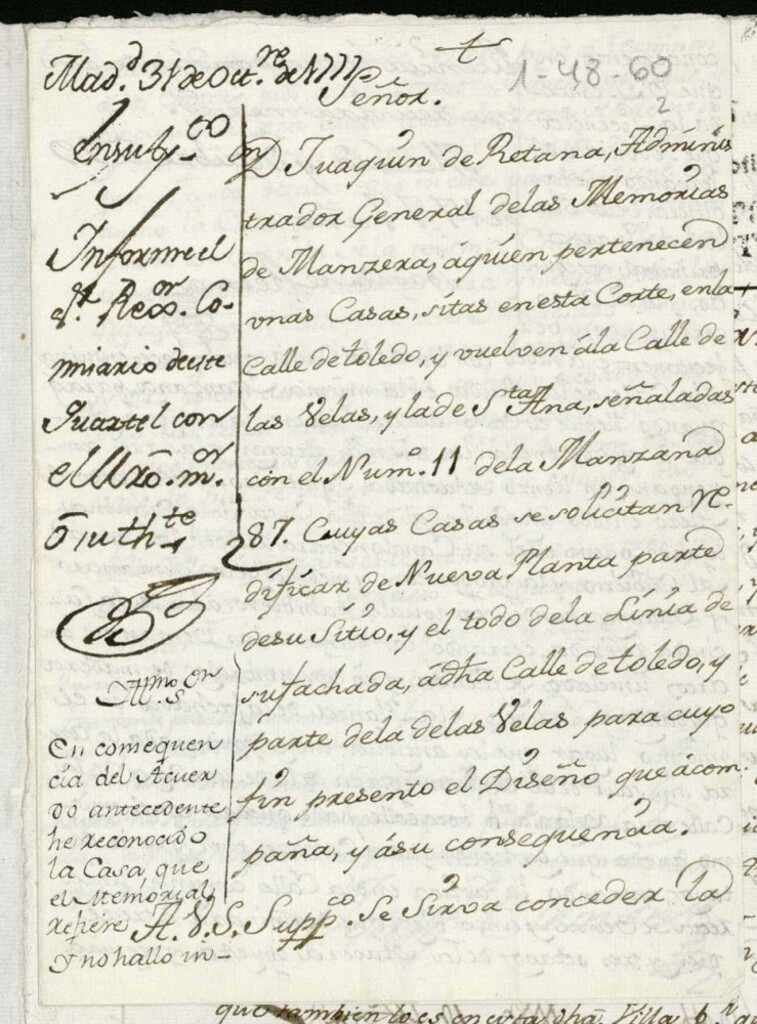 Mad.d 31 de Oct.re de 1777
1-48-60
2
Señor.
En su Ay.to
Informe el
S.r Rex.or Co-
misario deeste
Quartel con
el Mro. m.or
ô su th.te
Ill.mo S.or
En comsequen
cia del Acuer
do antecedente
he reconocido
la Casa, que
el Memorial
refiere
y no hallo in-
Dn Juaquin de Retana, Adminis
trador General delas Memorias
de Manzera, áquien pertenecen
vnas Casas, sitas enesta Corte, enla
Calle detoledo, y vuelven ála Calle de
las Velas, y lade Sta Ana, señaladas
con el Num.o 11 dela Manzana
87. Cuyas Casas se solicitan re-
dificar de Nueva Planta parte
desu Sitio, y el todo dela Linia de
sufachada, ádha Calle detoledo, y
parte dela delas Velas para cuyo
fin presento el Diseño que ácom-
paña, y ásu consequencia.
A. V. S. Supp.co Se Sirva conceder la
que tambien lo es en esta dha Villa